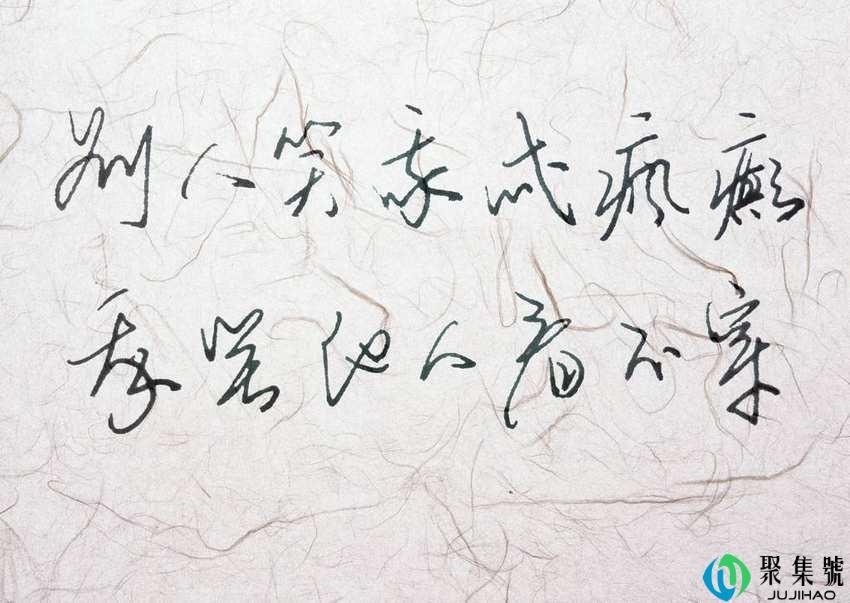 别人笑我忒疯癫
我笑他人看不穿
聚集號
JUJIHAO